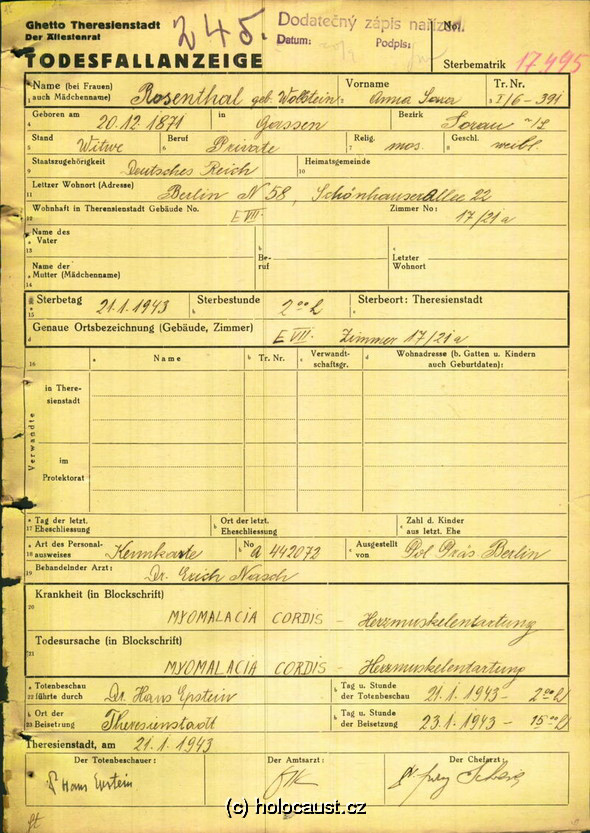 Ghetto Theresienstadt
Der Ältestenrat
TODESFALLANZEIGE
245.
Dodatečný zápis nařízen
Datum: Podpis:
No.
Sterbematrik 17495
1 Name (bei Frauen) auch Mädchenname) Rosenthal geb. Wollstein
2 Vorname Anna Sara
3 Tr. Nr. I/6-391
4 Geboren am 20.12.1871 in Gassen Bezirk Sorau n/L
5 Stand Witwe 6 Beruf Private 7 Relig. mos. 8 Geschl. weibl.
9 Staatszugehörigkeit Deutsches Reich 10 Heimatsgemeinde
11 Letzter Wohnort (Adresse) Berlin N 58, Schönhauserallee 22
12 Wohnhaft in Theresienstadt Gebäude No. E VII. Zimmer No: 17/21a
13 a Name des Vater b Be-ruf c Letzter Wohnort
14 a Name der Mutter (Mädchenname)
15 a Sterbetag 21.1.1943 b Sterbestunde 2 00 h c Sterbeort: Theresienstadt
d Genaue Ortsbezeichnung (Gebäude, Zimmer) E VII. Zimmer 17/21a
16 a Name b Tr. Nr. c Verwandt-schaftsgr. d Wohnadresse (b. Gatten u. Kindern auch Geburtdaten):
Verwandte
in There-
sienstadt
im
Protektorat
17 a Tag der letzt. Eheschliessung b Ort der letzt. Eheschliessung c Zahl d. Kinder aus letzt. Ehe
18 a Art des Personal-ausweises Kennkarte b No A 442072 c Ausgestellt von Pol Präs Berlin
19 Behandelnder Arzt: Dr. Erich Nasch
20 Krankheit (in Blockschrift)
MYOMALACIA CORDIS - Herzmuskelentartung
21 Todesursache (in Blockschrift)
MYOMALACIA CORDIS - Herzmuskelentartung
22 a Totenbeschau führte durch Dr. Hans Epstein b Tag u. Stunde der Totenbeschau 21.1.1943 - 2 00 h
23 a Ort der Beisetzung Theresienstadt b Tag u. Stunde der Beisetzung 23.1.1943 - 15 00 h
Theresienstadt, am 21.1.1943
Der Totenbeschauer: Der Amtsarzt: Der Chefarzt:
Hans Epstein
(c) holocaust.cz